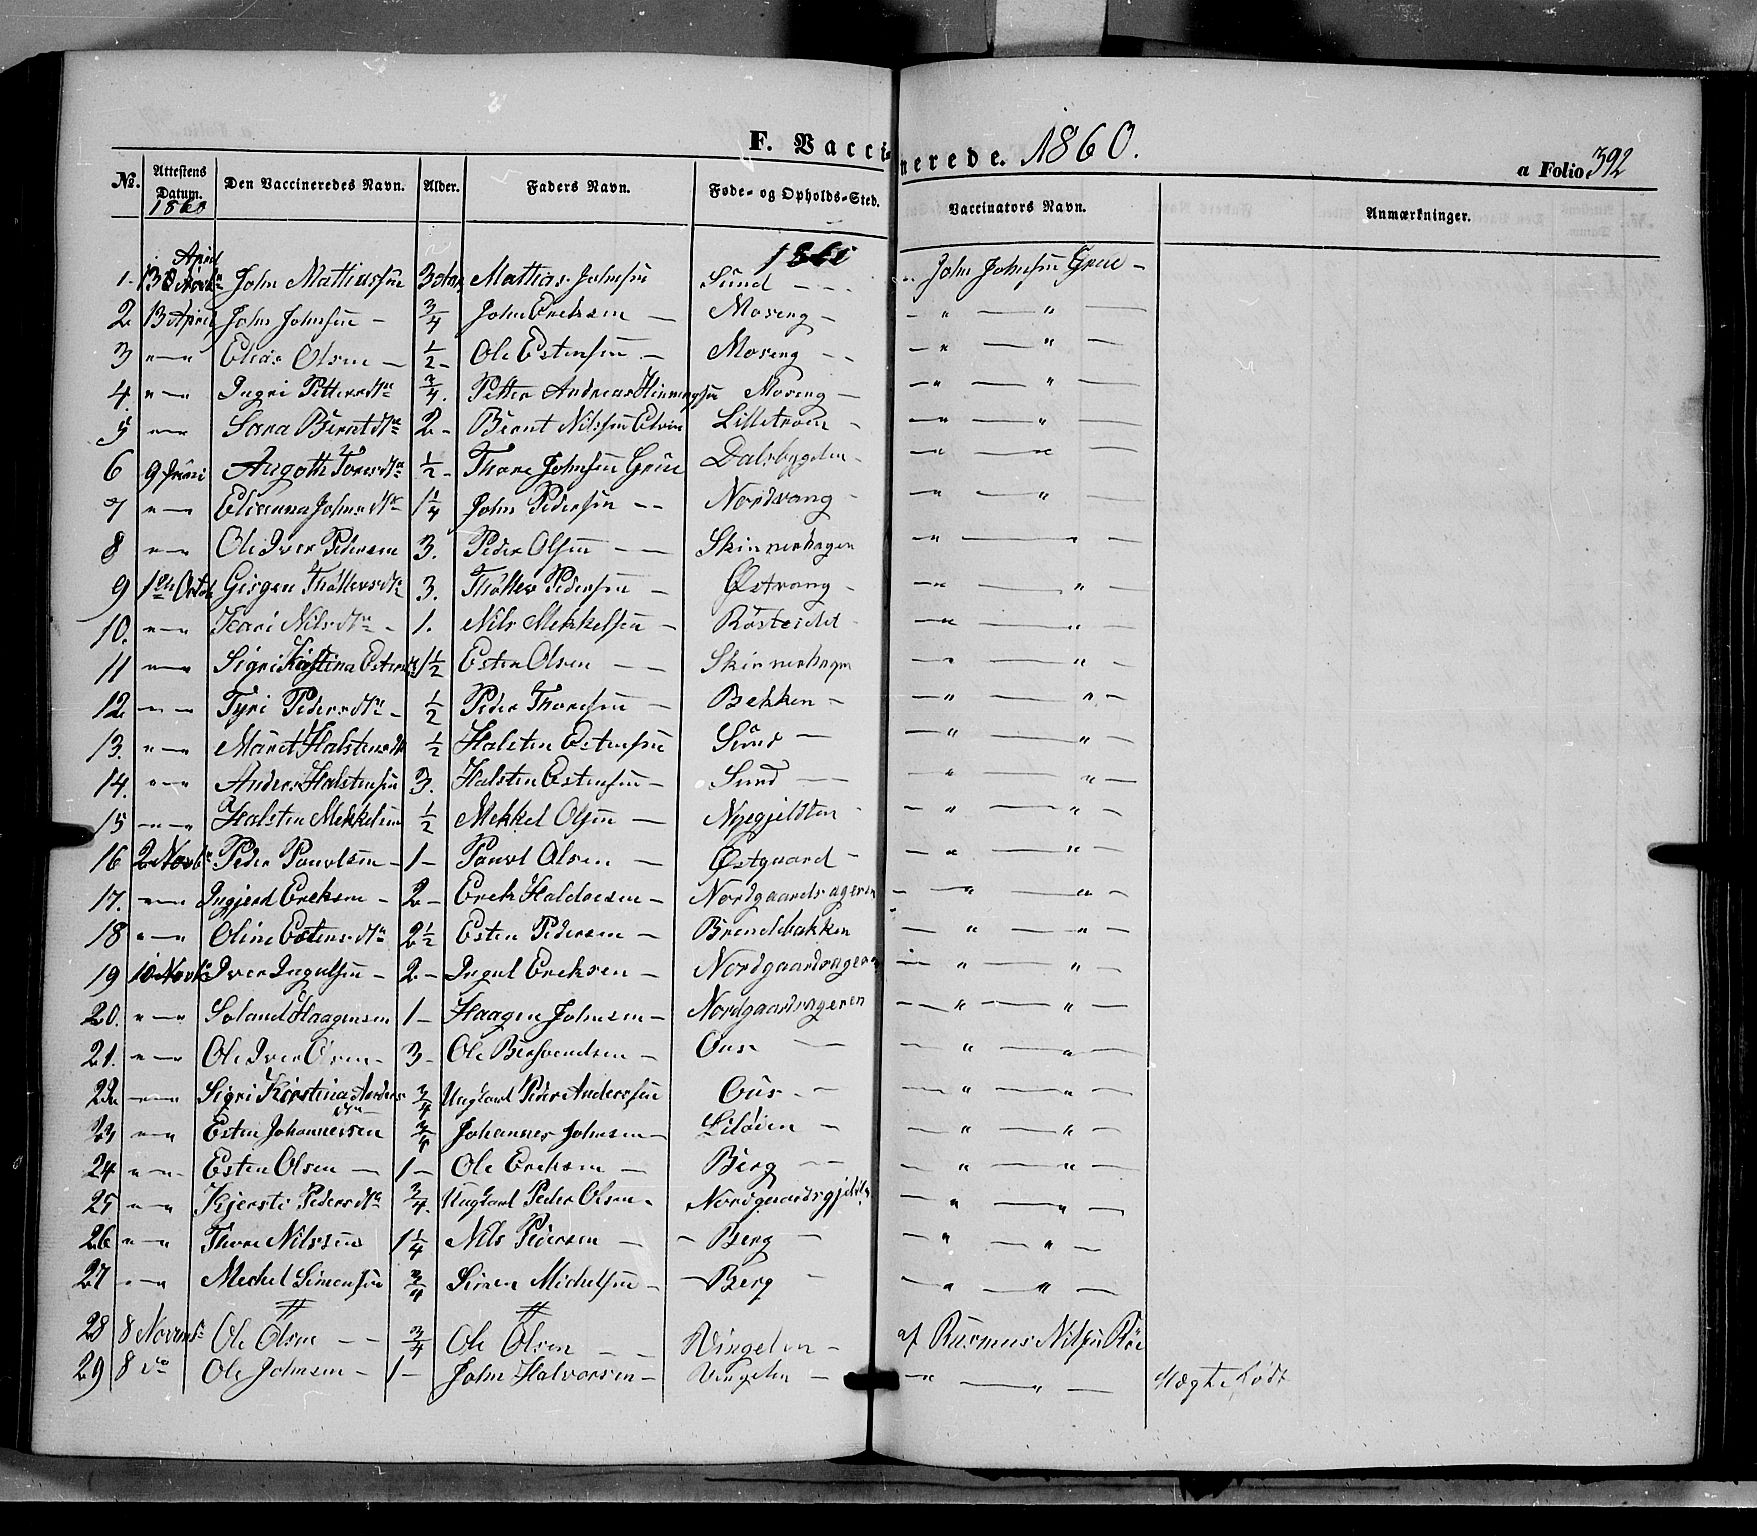 F. Vaccinerede. 1860.
a Folio 392
No. Attestens Datum. 1860 Den Vaccineredes Navn. Alder. Faders Navn. Føde- og Opholds-Sted. Vaccinators Navn. Anmærkninger.
April
1. 13 John Mathiassen 3 Mathias Johnsen Sund - - - John Johnsen Grue -
2 13 April John Johnsen - 3/4 John Ericksen - Moseng - - " - " -
3 " - " Elias Olsen - 1/2 - Ole Estensen - Moseng - - - " - " -
4 " - " Ingri Pettersdtr 3/4. Petter Andreas Moseng - - " - " -
5 " - " Sara Berntdtr 2 - Bernt Nilssen Lillestrøen - - " - " -
6 9 Juni Angoth Toresdtr 1/2 - Thore Johnsen Grue Dalsbygden - - " - " -
7 " - " Elianna Johnsdtr 1 1/4 John Pedersen - - Nordvang - - " - " -
8 " - " Ole Iver Pedersen 3. Peder Olsen - - Skinnerhagen - " - " -
9 1ste Octob Gjørgen Thøllersdtr 3. Thøller Pedersen - Østvang - - " - " -
10. " - " Kari Nilsdtr - 1. Nils Mekkelsen - Røsteidet - - " - " -
11 " - " Sigri Kirstina Estensdtr 1 1/2 Esten Olsen - - Skinnerhagen - " - " -
12 " - " Tyri Pedersdtr - 1/2 Peder Thoresen - Bekken - - " - " -
13. " - " Maret Halstensdtr 1/2 Halsten Estensen Sund - - " - " -
14. " - " Anders Halstensen 3. Halsten Estensen - Sund - - - " - " -
15 " - " Halsten Mekkelsen 1/2 Mekkel Olsen - Nyegjeldten - - " - " -
16 2 Novbr Peder Pouvlsen - 1 - Pouvl Olsen - Østgaard - - " - " -
17. " - " Ingjerd Ericksen - 2 - Erick Haldosen - Nordgaardsageren - " - " -
18 " - " Oline Estensdtr 2 1/2 Esten Pedersen - Brendebakken - " - " -
19 10 Novbr Iver Ingulsen - 2 - Ingul Ericksen - Nordgaardsageren - " - " -
20. " - " Haagensen 1 - Haagen Johnsen - Nordgaardsageren - " - " -
21. " - " Ole Iver Olsen - 3 - Ole Bersvendsen - Ous - - " - " -
22 " - " Sigri Kirstina Andersdtr 3/4 Ungkarl Peder Anderssen Ous - - " - " -
23 " - " Esten Johannessen 3/4 Johannes Johnsen - Liløien - - " - " -
24 " - " Esten Olsen - 1 - Ole Ericksen - Berg - - - " - " -
25 " - " Kjersti Pedersdtr 3/4. Ungkarl Peder Olsen - Nordgaardsgjeldten - " - " -
26 " - " Thore Nilssen 1 1/4 Nils Pedersen - - Berg - - " - " -
27 " - " Mechel Simensen 3/4 Simen Michelsen - - Berg - - " - " -
28 8 Novemb Ole Olsen - - 3/4 Ole Olsen - - Vingelen - af Rasmus Nilsen Røe
29 8 do Ole Johnsen - 1 - John Halvorsen - Vingelen - - " - " - Uægte Født